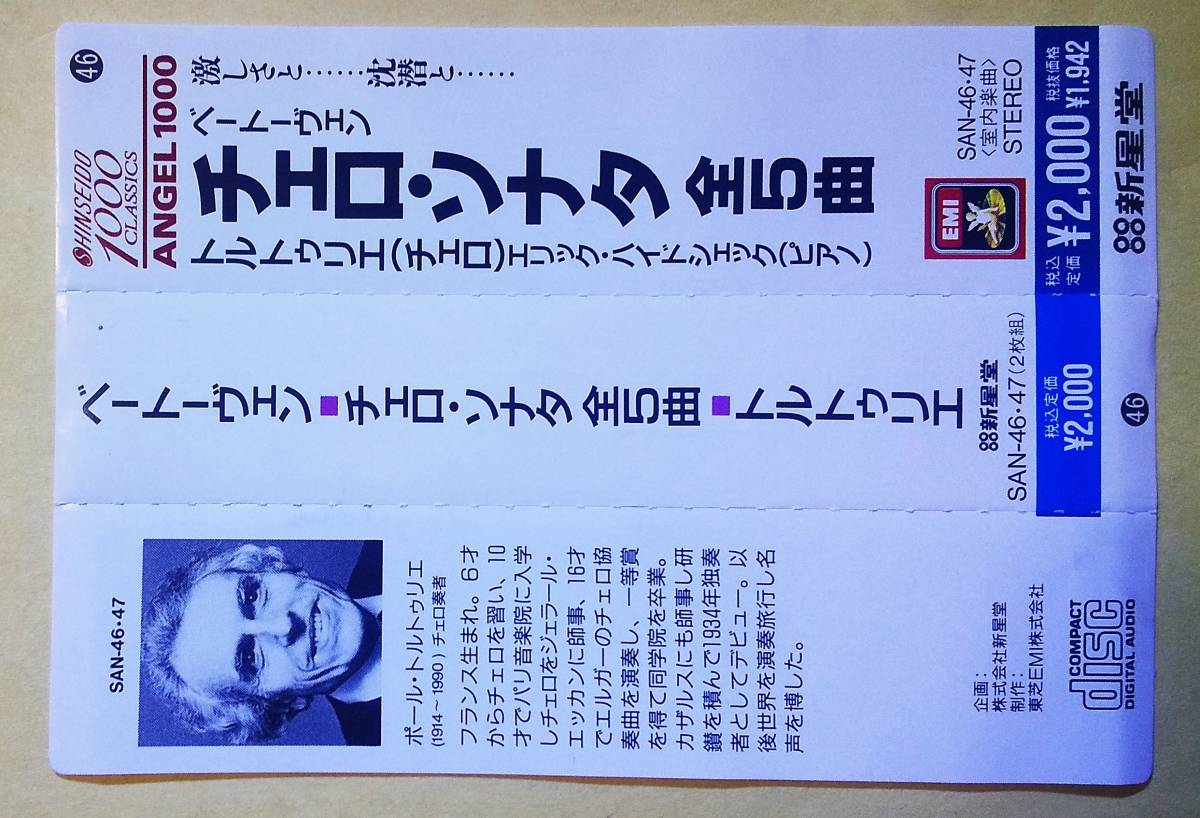 46
SHINSEIDO
1000
CLASSICS
ANGEL 1000
激しさと……沈潜と……
ベートーヴェン
チェロ・ソナタ 全5曲
トルトゥリエ(チェロ)エリック・ハイドシェック(ピアノ)
EMI
SAN-46・47
〈室内楽曲〉
STEREO
税込
定価 ¥2,000 税抜価格 ¥1,942
新星堂
ベートーヴェン■チェロ・ソナタ 全5曲■トルトゥリエ
新星堂
SAN-46・47(2枚組)
税込定価
¥2,000
46
SAN-46・47
ポール・トルトゥリエ
(1914～1990) チェロ奏者
フランス生まれ。6才
からチェロを習い、10
才でパリ音楽院に入学
しチェロをジェラール・
エッカンに師事、16才
でエルガーのチェロ協
奏曲を演奏し、一等賞
を得て同学院を卒業。
カザルスにも師事し研
鑚を積んで1934年独奏
者としてデビュー。以
後世界を演奏旅行し名
声を博した。
企画：
株式会社新星堂
制作：
東芝EMI株式会社
COMPACT
disc
DIGITAL AUDIO